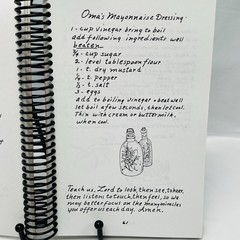 Oma's Mayonnaise Dressing
1 - cup vinegar bring to boil
add following ingredients well
beaten
3/4 - cup sugar
2 - level tablespoon flour
1 - t. dry mustard
1/4 t. pepper
1/2 t. salt
3 - eggs
add to boiling vinegar + beat well
let boil a few seconds, then let cool.
Thin with cream or buttermilk,
when cool.
Teach us, Lord to look, then see, to hear,
then listen; to touch, then feel, so we
may better focus on the many miracles
you offer us each day. Amen.
61